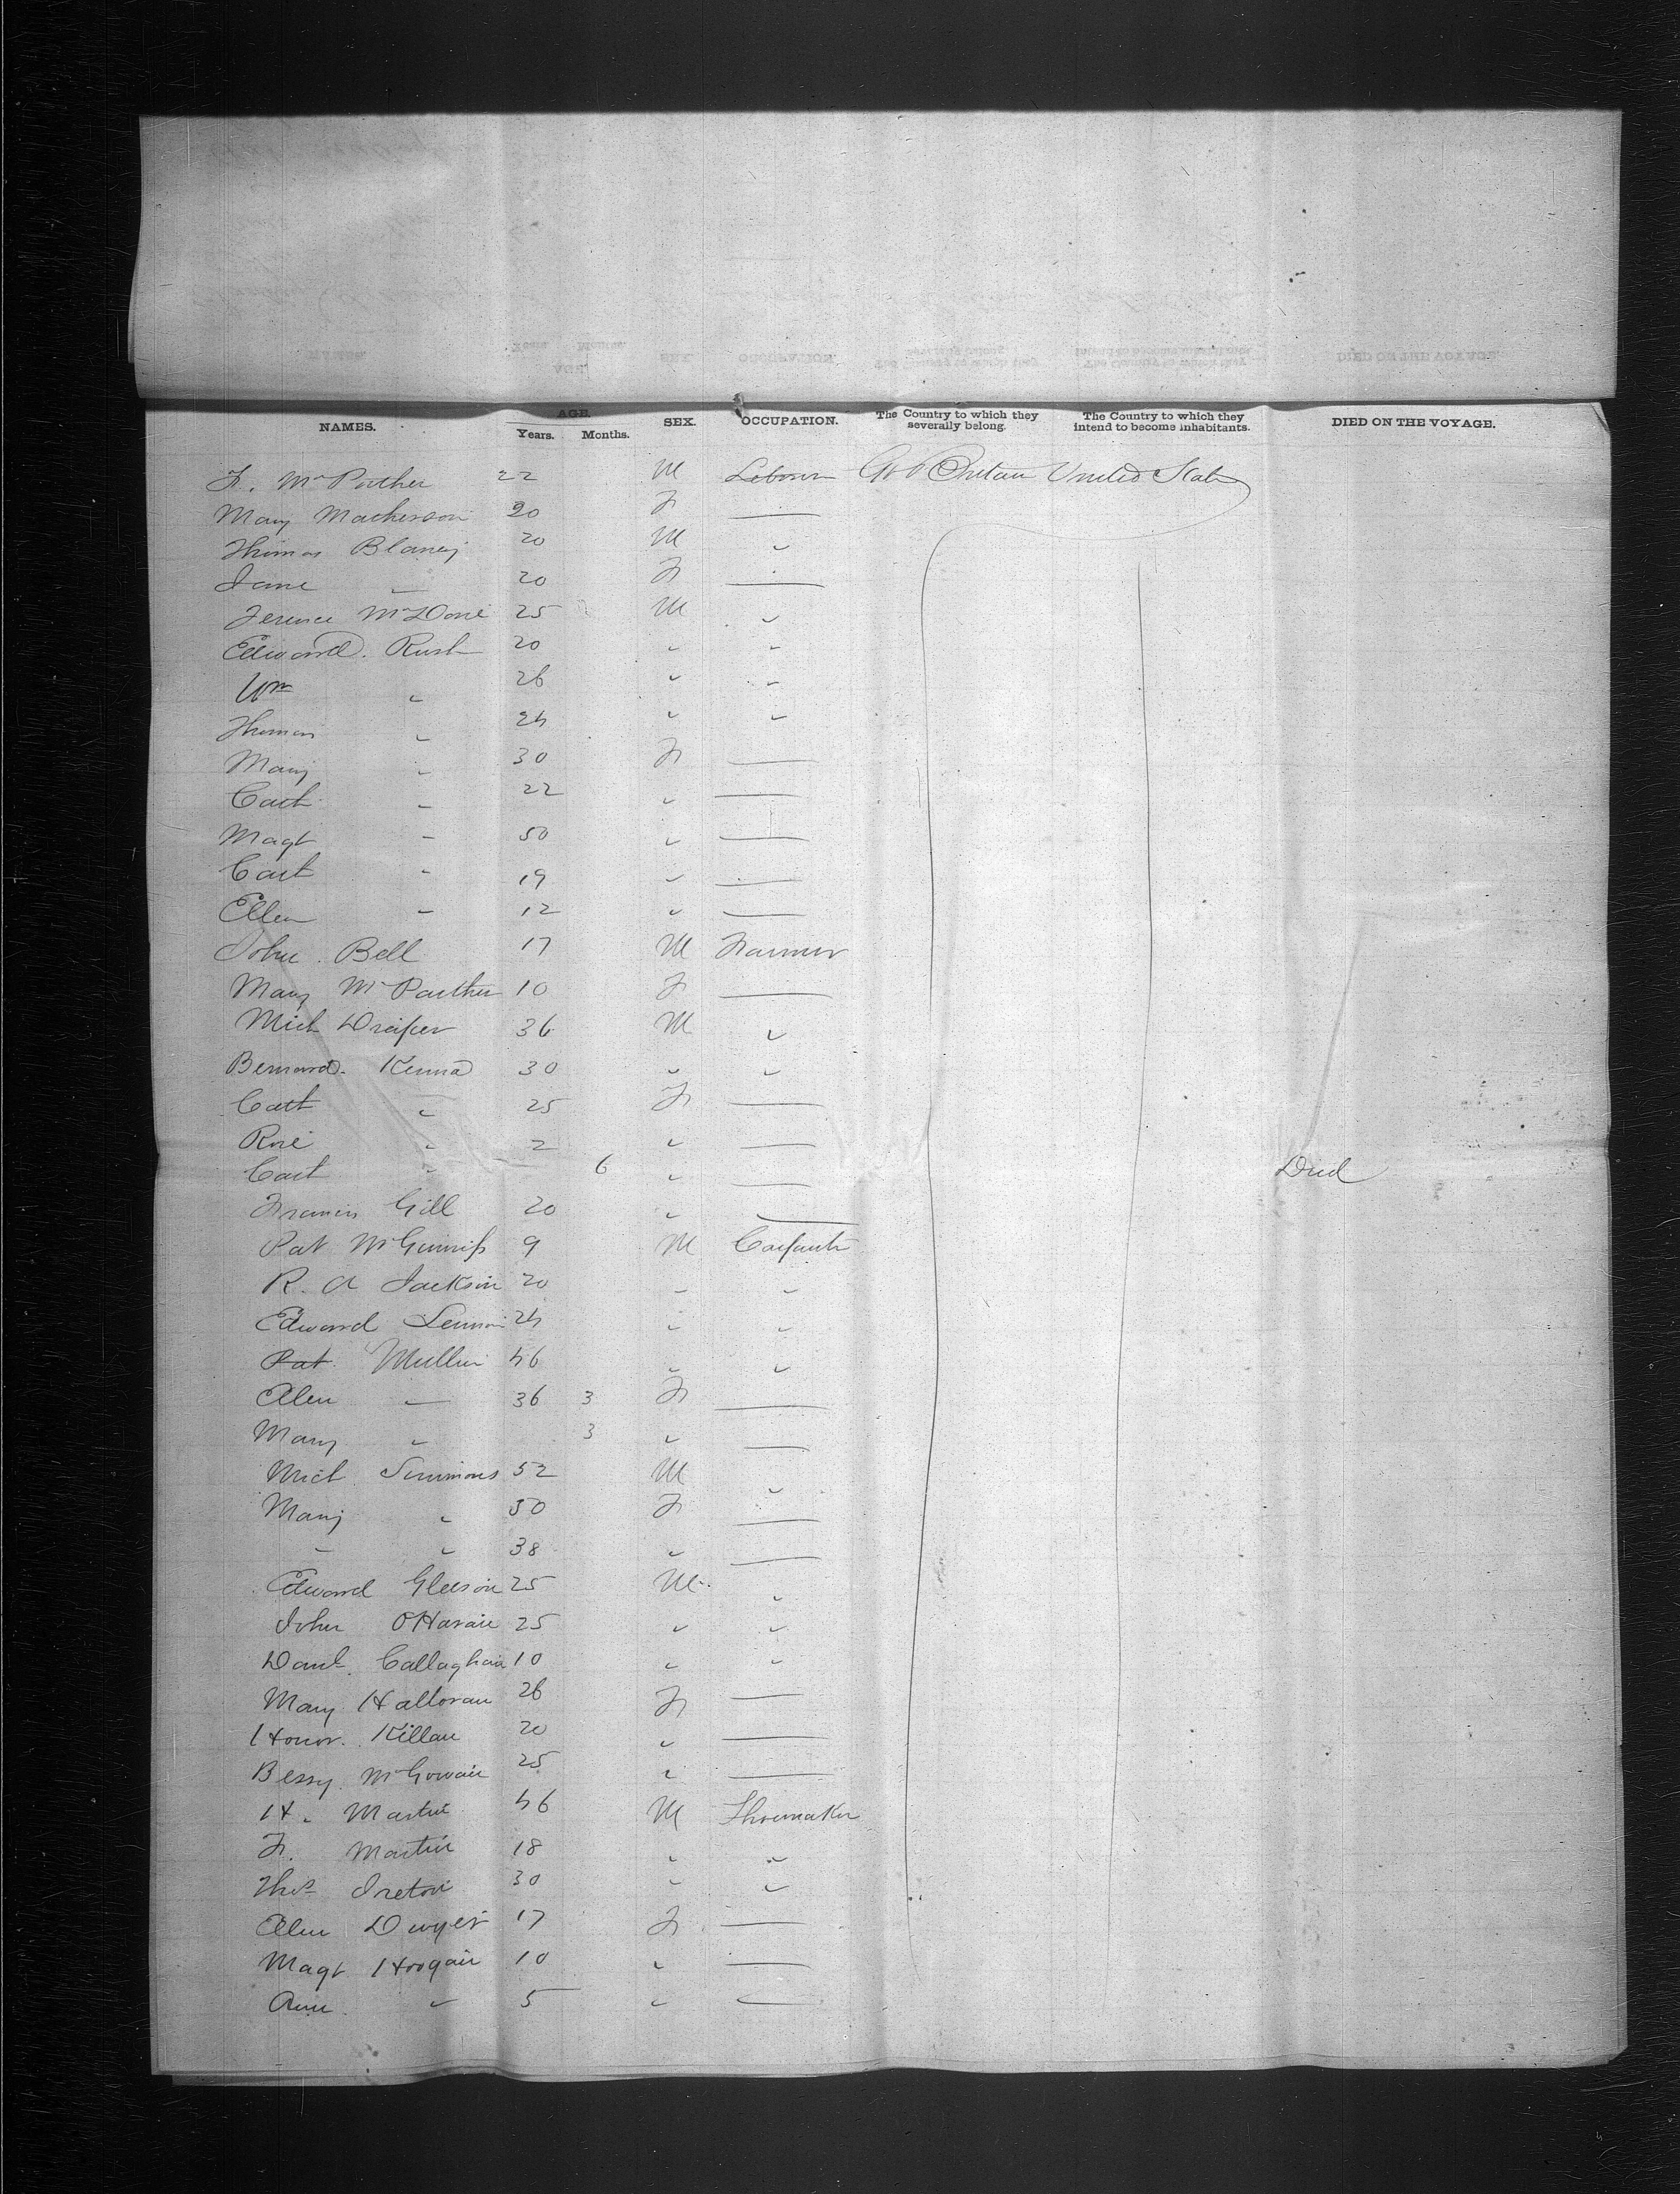 NAMES. AGE. Years. Months. SEX. OCCUPATION. The Country to which they severally belong. The Country to which they intend to become inhabitants. DIED ON THE VOYAGE.
F. Mc Parther 22 M Labour Gt Britain United States
Mary Mackerson 20 F —
Thomas Blaney 20 M "
Jane — 20 F —
Terence 25 M "
Edward. Rush 20 " "
Wm " 26 " "
Thomas " 24 " "
Mary " 30 F —
Cath " 22 " —
Magt " 50 " —
Cath " 19 " —
Ellen " 12 " —
John. Bell 17 M Farmer
Mary Mc Parther 10 F —
Mich Draper 36 M "
Bernard. Kenna 30 " "
Cath " 25 F —
Rose " 2 " —
Cath " 6 " — Died
Francis Gill 20 " —
Pat McGinniss 9 M Carpenter
R. A Jackson 20 " "
Edward Lennon 24 " "
Pat Mullin 46 " "
Alen — 36 3 F —
Mary " 3 " —
Mich Simmons 52 M "
Mary " 50 F —
" " 38 " —
Edward Gleeson 25 M "
John 25 " "
Danl. Callaghan 10 " "
Mary Halloran 26 F —
Honor. Killan 20 " —
Bessy. McGowan 25 " —
H. Martin 46 M Shoemaker
F. Martin 18 " "
Thos Ireton 30 " "
Alen Dwyer 17 F —
Magt Hoogan 10 " —
Ann. " 5 " —